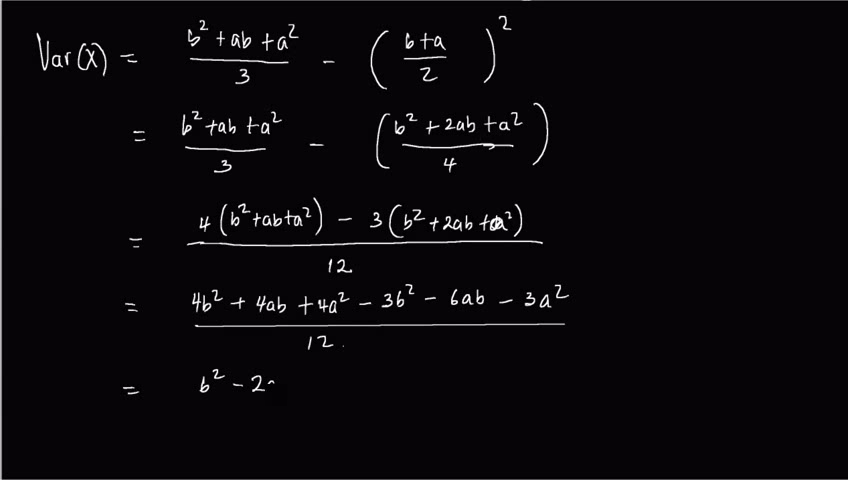 Var(X) = (b² + ab + a²)/3 - ((b+a)/2)²
= (b² + ab + a²)/3 - ((b² + 2ab + a²)/4)
= (4(b² + ab + a²) - 3(b² + 2ab + a²))/12
= (4b² + 4ab + 4a² - 3b² - 6ab - 3a²)/12.
= b² - 2